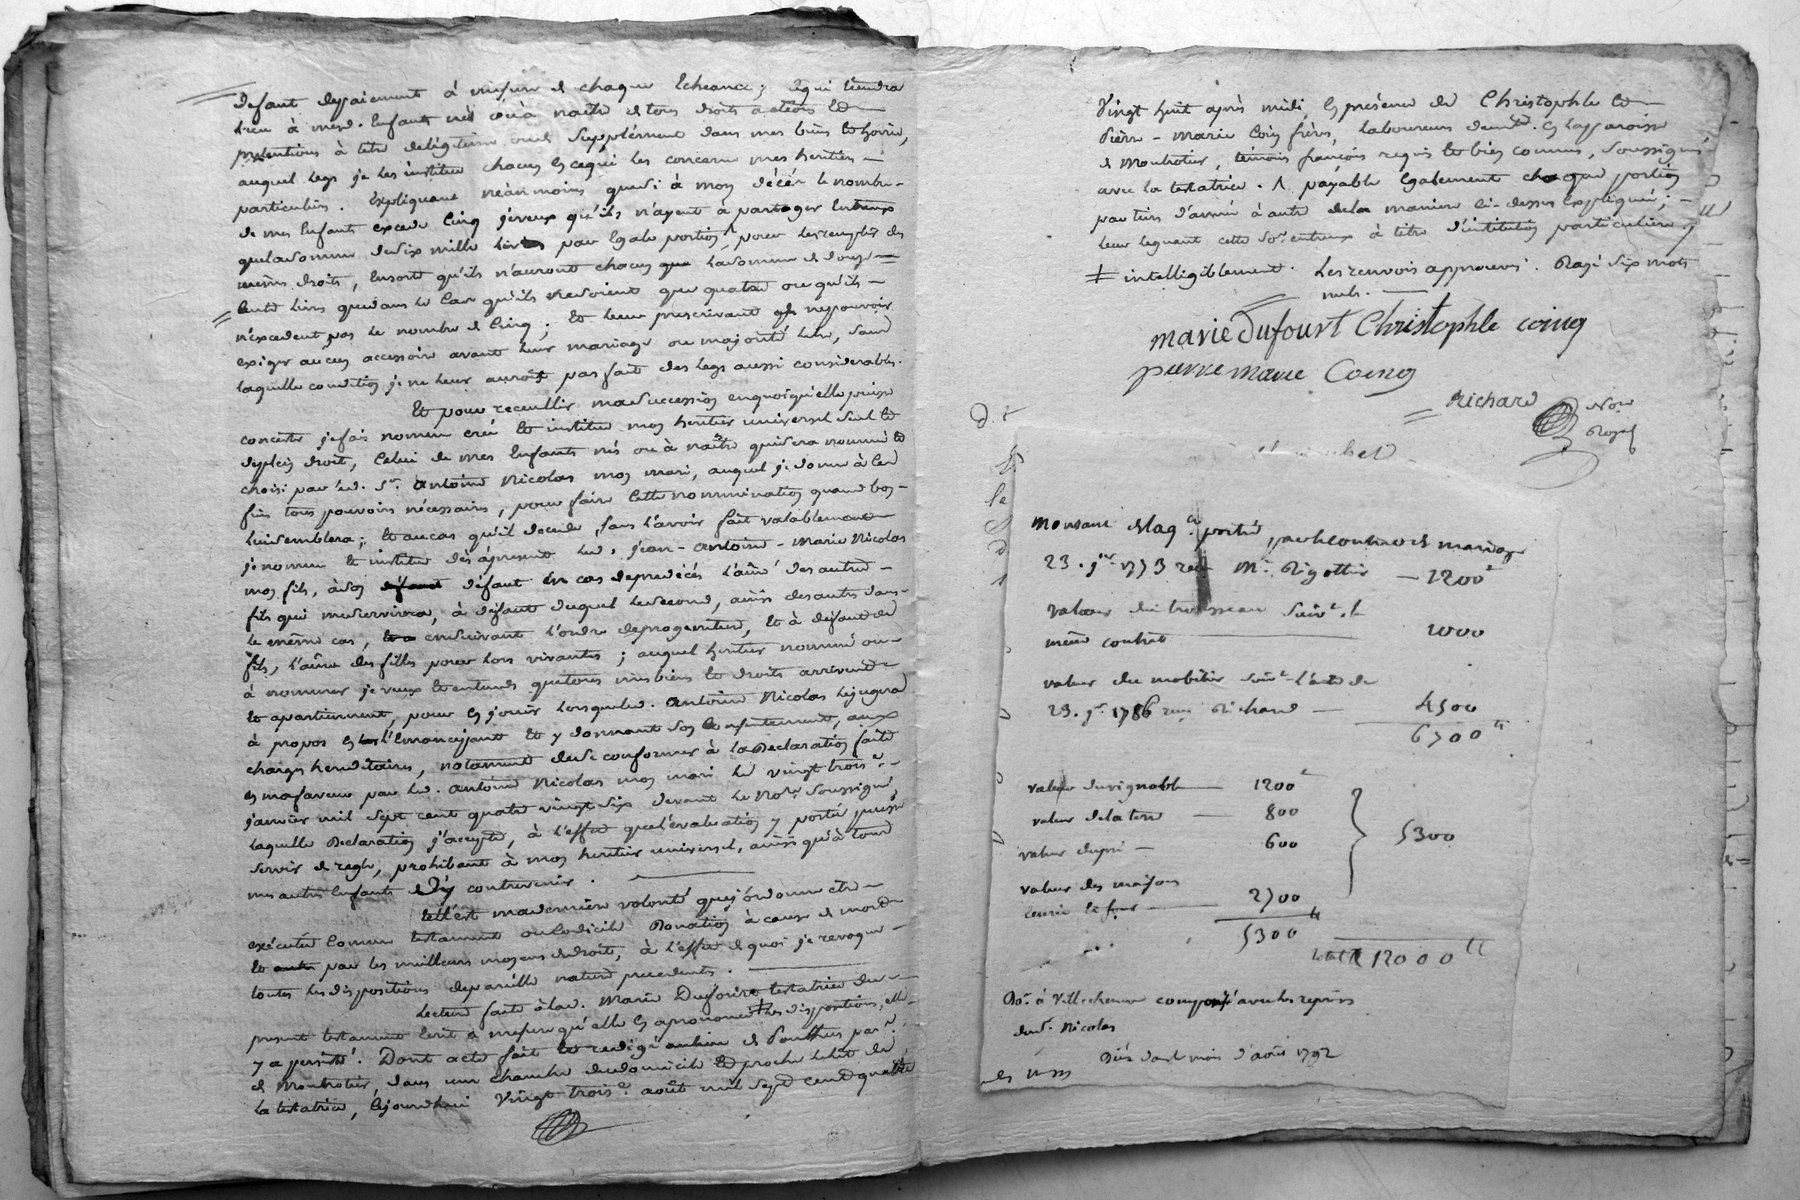 defaut depaiement à mesure de chaque Echeance; cequi tiendra
Lieu à mesd. Enfants nés ou à naître de tous droits actions et
pretentions à titre delégitime ou de Supplément dans mes biens et hoirie,
auquel legs je les institue chacun en cequi les concerne mes heritiers
particuliers. Expliquant néanmoins que si à mon décés le nombre
de mes Enfants excede cinq jeveux qu'ils n'ayent à partager Entreux
quelasomme desix mille livres par Egale portion, pour lesremplir des
mêmes droits, Ensorte qu'ils n'auront chacun que lasomme de douze
cents livres quedans le cas qu'ils neseroient que quatre ou qu'ils
n'excedent pas le nombre de cinq; Et leur prescrivant de nepouvoir
exiger aucun accessoire avant leur mariage ou majorité, sans
laquelle condition je ne leur aurois pas fait des legs aussi considerables.
Et pour recueillir masuccession enquoiqu'elle puisse
consister jefais nomme crée Et institue mon heritier universel Seul et
deplein droit, Celui de mes Enfants nés ou à naître quisera nommé et
choisi par led. Sr. Antoine Nicolas mon mari, auquel je donne à ces
fins tous pouvoirs nécessaires, pour faire Cette nommination quand bon
luisemblera; Et aucas qu'il decede sans l'avoir fait valablement
je nomme Et institue dès àpresent led. jean-antoine-Marie Nicolas
mon fils, àson défaut En cas depredécés l'ainé des autres
fils qui mesurvivra, à défaut duquel lesecond, ainsi desautres dans
le même cas, ensuivant l'ordre deprogeniture, Et à défaut de
fils, l'ainée des filles pour lors vivantes; auquel heritier nommé ou
à nommer je veux Et entends quetous mes biens et droits arrivent
Et apartiennent, pour en jouir lorsqueled. Antoine Nicolas lejugera
à propos en l'Emancipant Et y donnant son Consentement, aux
charges hereditaires, notament dese conformer à la Declaration faite
en mafaveur par led. Antoine Nicolas mon mari le vingt trois
janvier mil sept cent quatre vingt six devant le Nore. Soussigné,
laquelle Declaration j'accepte, à l'effet quel'évaluation y portée puisse
Servir de regle, prohibant à mon heritier universel, ainsi qu'à tous
mes autres Enfants d'y contrevenir.
telle est maderniere volonté quej'ordonne etre
exécutée comme testament ou codicile Donation à cause de mort
Et par les meilleurs moyens dedroit, à l'effet de quoi je revoque
toutes lesdispositions depareille nature precedentes.
Lecture faite à lad. Marie Dufour testatrice du
present testament Ecrit à mesure qu'elle en aprononcé les dispositions, elle
y a persisté. Dont acte fait
de Montrotier, dans une chambre dudomicile Et proche le lit de
la testatrice, Cejourdhui vingt trois août mil sept cent quatre
Vingt huit après midi, En présence de Christophle et
Pierre-marie Coing frères, Laboureurs demts. En laparoisse
de Montrotier, témoins françois requis Et bien connus, Soussignés
avec la testatrice. payable Egalement chaque portion
par tiers d'année à autre dela maniere ci-dessus Expliquée;
leur leguant cette So. entreux à titre d'institution particuliere.
intelligiblement. Les renvois approuvés. Rayé Six mots
nuls.
marie Dufourt Christophle coing
pierre marie Coing
Richard
Nore
Royal
Montant de porté par le contract de mariage
23. jer 1773 reçu Me. Rigottier — 1200
Valeur du trousseau suivt. le
même contrat 1000
valeur du mobilier suivt. l'acte du
23. jr. 1786 reçu Richard — 4500
6700
valeur duvignoble 1200
valeur delaterre — 800
valeur dupré — 600
valeur des maisons
2700
5300
5300
total 12000
à Villechenve composé avec les reprises
dud. Nicolas
mois d'août 1792